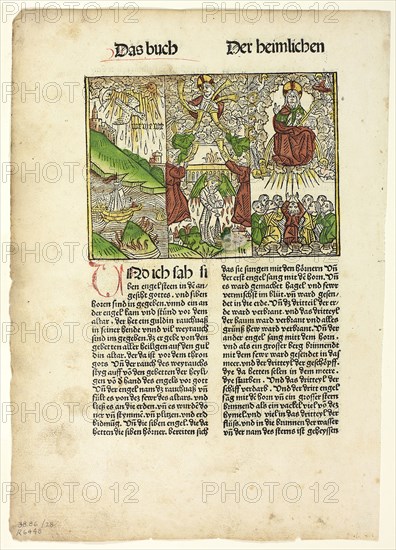 Das buch
Der heimlichen
ve ve ve
UNd ich sah si
ben engel steen in dē an
gesicht gottes . vnd siben
horen sind in gegeben . vnnd ein an
der engel kam vnd stūnd vor dem
altar . der het ein guldin rauchuaß
in seiner hende vnnd vil weyrauch
sind im gegeben . dz er geb von den ge
betten aller heiligen auf den gul
din altar . der da ist vor dem thron
gots Vnd der rauch des weyrauchs
steyg auff võ den gebetten der heyli
gen võ d hand des engels vor gott
Vnd der engel nam dz rauchuaß vñ
füll es von dez fewr des altars . vnd
ließ es an die erden . vñ es wurdē do
ner vñ stymmē . vñ plitzen . vnd erd
bidmūg . Vñ die siben engel . die da
hetten die siben hörner . bereiten sich
das sie sungen mit den hörnern Vñ
der erst engel sang mit dē horn . Vñ
es ward gemachet hagel vnd fewr
vermischt im blut . vñ ward gesen
det in die erd . Vñ dz dritteil der er
de ward verbrant . vnd das dritteyl
der baum ward verbrant vnd alles
grüns hew ward verbrant . Vnd der
ander engel sang mit dem horn .
vnd als ein grosser berg brinnende
mit dem fewr ward gesendet in das
meer . vnd der dritteyl der geschöpff .
dye da hetten selen in dem meere .
dye sturben . Vnd das dritteyl der
schiff verdarb . Vnd der drit engel
sāg mit dē horn vñ ein grosser stern
brinnend als ein vackel viel võ dez
hymel . vnd viel in das dritteyl der
flüss . vnd in die brunnen der wasser
vñ der nam des sterns ist geheyssen
38.86 / 28
R6448
PHOTO12
PHOTO12
PHOTO12
PHOTO12
PHOTO12
PHOTO12